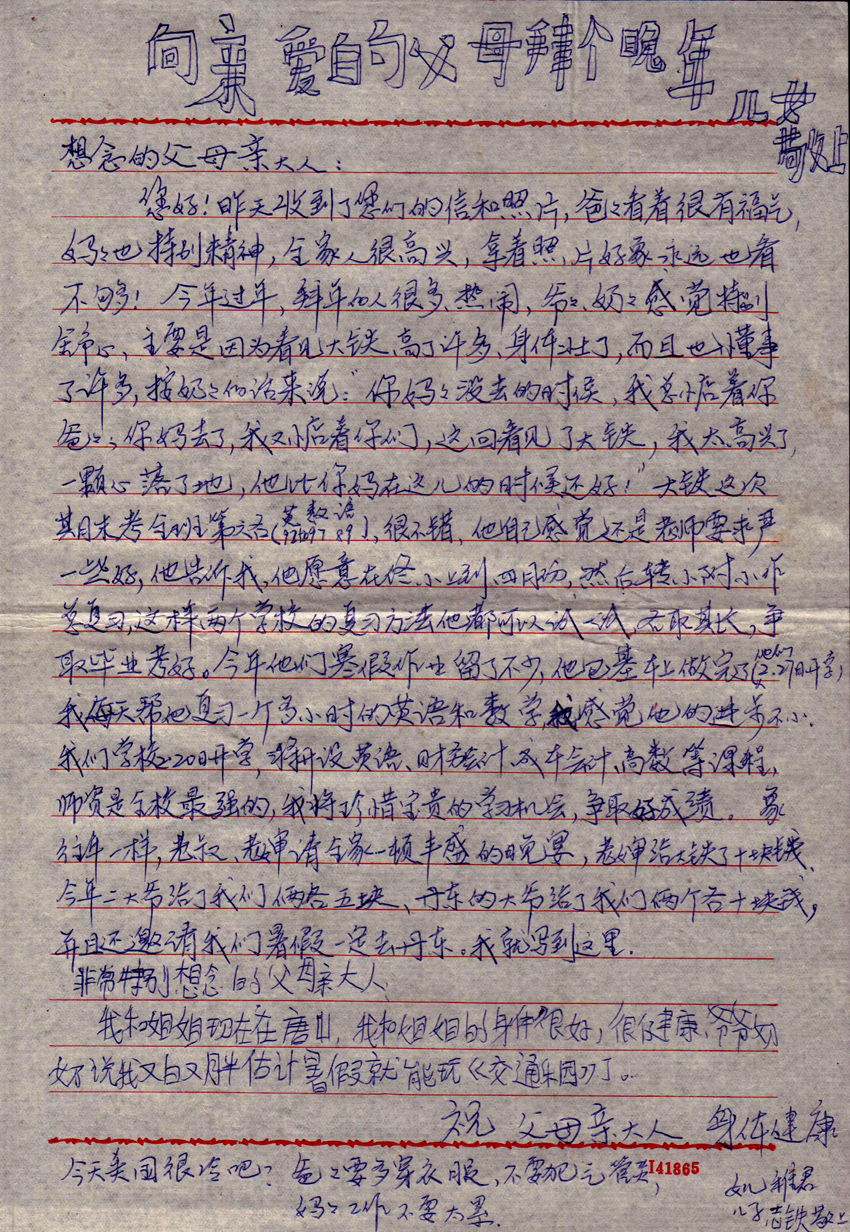 向亲爱的父母拜个晚年
儿女
敬上
想念的父母亲大人：
您好！昨天收到了您们的信和照片，爸爸看着很有福气，
妈妈也特别精神，全家人很高兴，拿着照片好象永远也看
不够多！今年过年，拜年的人很多、热闹，爷爷、奶奶感觉特别
舒心，主要是因为看见大铁高了许多、身体壮了，而且也懂事
了许多，按奶奶的话来说：“你妈妈没去的时候，我总惦着你
爸爸；你妈去了，我又惦着你们，这回看见了大铁，我太高兴了，
一颗心落了地，他比你妈在这儿的时候还好！”大铁这次
期末考全班第六名（英 数 语 92 97 89），很不错，他自己感觉还是老师要求严
一些好，他告诉我，他愿意在佟小上到四月份，然后转小附小作
总复习，这样两个学校的复习方法他都可以试一试，各取其长，争
取毕业考好。今年他们寒假作业留了不少，他已基本上做完了（他们2.27日开学）
我每天帮他复习一个多小时的英语和数学，我感觉他的进步不小。
我们学校2.20日开学，将开设英语、财会会计、成本会计、高数等课程，
师资是全校最强的，我将珍惜宝贵的学习机会，争取好成绩。象
往年一样，老叔、老婶请全家一顿丰盛的晚宴，老婶给大铁了十块钱、
今年二大爷给了我们俩各五块、丹东的大爷给了我们俩个各十块钱，
并且还邀请我们暑假一定去丹东。我就写到这里.
非常特别想念的父母亲大人、
我和姐姐现在在唐山，我和姐姐的身体很好，很健康、爷爷奶
奶说我又白又胖估计暑假就能玩《交通乐园》了。
祝 父母亲大人 身体健康
今天美国很冷吧？爸爸要多穿衣服，不要犯气管炎，
141865
妈妈工作不要太累.
女儿 雅君
儿子 志铁敬上